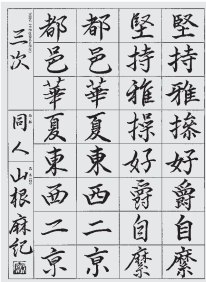 堅持雅操好爵自縻
堅持雅操好爵自縻
都邑華夏東西二亰
都邑華夏東西二亰
三次 同人 山根麻紀